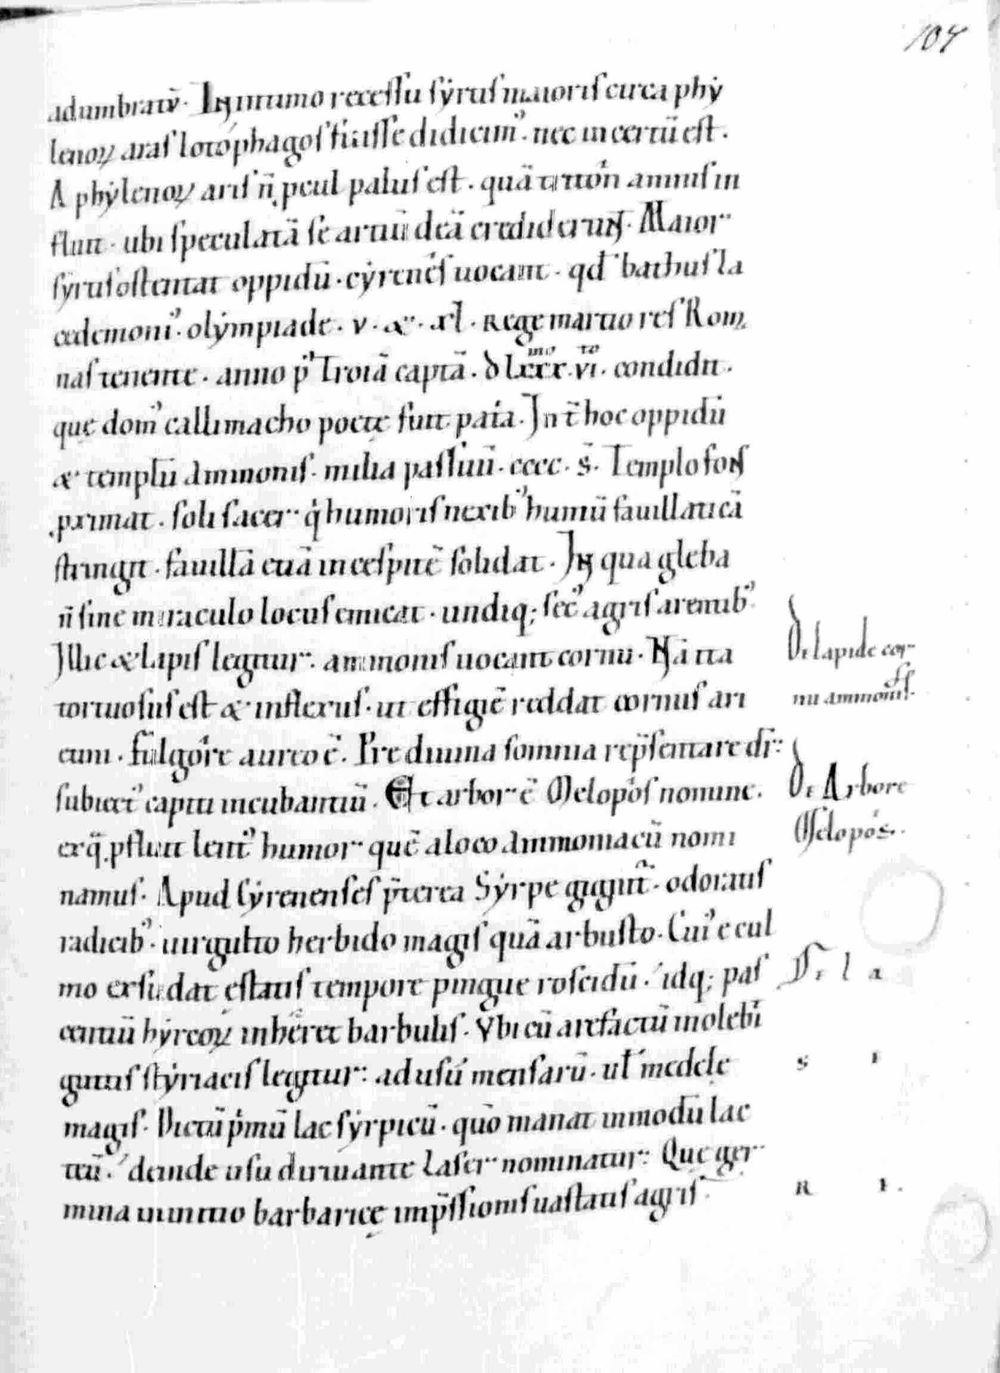 107
adumbratṽ. In intimo recessu sẏrtis maioris circa phẏ
lenoꝝ aras lotóphagos fuisse didicim᾿. nec incertũ est.
A phẏlenoꝝ aris ñ ꝓcul palus est. quã tritoñ amnis in
fluit. ubi speculatã se artiũ deã crediderunt. Maior
sẏrtis ostentat oppidũ. cẏrenẽs uocant. qđ bathus la
cedemoni᾿. olẏmpiade. v. &. xl. Rege martio res Rom
nas tenente. anno p᾿ troiã captã. dlxxx.vi. condidit.
que dom᾿ callimacho poetę fuit patía. Int̃ hoc oppidũ
& templũ Ammonis. milia passuũ. cccc. s̃. Templo fons
ꝓximat. soli sacer qⁱ humoris nexib᾿ humũ fauillaticã
stringit. fauillã etiã in cespitẽ solidat. In qua gleba
ñ sine miraculo locus emicat. undiq; sec᾿ agris arentib᾿.
Illic & lapis legitur. ammonis uocant cornu. Nã ita
tortuosus est & inflexus. ut effigiẽ reddat cornus ari
etini. fulgore aureo ẽ. Prediuina somnia rep̃sentare dr̃:
subiect᾿ capiti incubantiũ. Et arbor ẽ Melopós nomine.
ex q̃ ꝓfluit lent᾿ humor quẽ a loco Ammoniacũ nomi
namus. Apud sẏrenenses p̃terea Sẏrpe gignit̃. odoratis
radicib᾿. uirgulto herbido magis quã arbusto. Cui᾿ e cul
mo exsudat estatis tempore pingue roscidũ. idq; pas
centiũ hẏrcoꝝ inheret barbulis. Vbi cũ arefactũ inoleb̃i
guttis stẏriacis legitur: ad usũ mensarũ. ul᾿ medelę
magis. Dictũ pⁱmũ lac sẏrpicũ. quõ manat in modũ lac
teũ. deinde usu diriuante Laser nominatur: Quę ger
mina initio barbaricę imp̃ssionis uastatis agris.
De lapide cor
nu ammonis.
De Arbore
Melopós.
De l a
s e
R i.